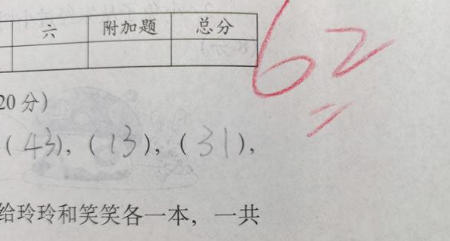 六 附加题 总分
62
20分)
(43), (13), (31),
给玲玲和笑笑各一本，一共